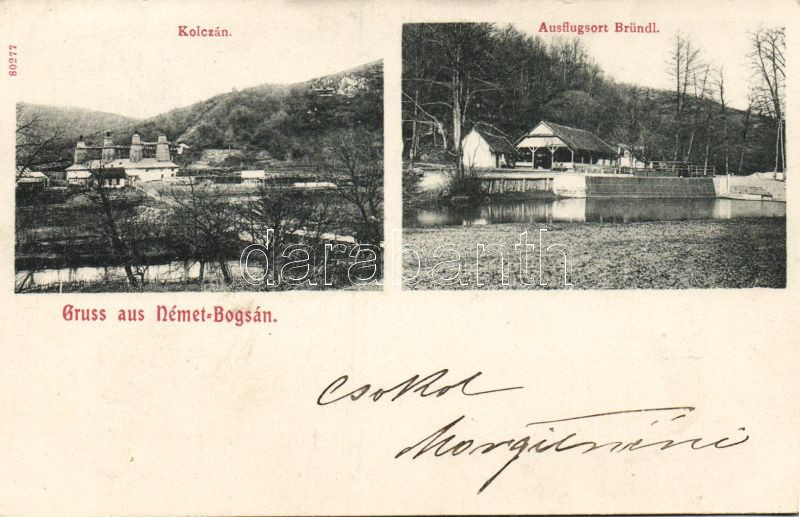 80277
Kolczán.
Ausflugsort Bründl.
darabanth
Gruss aus Német-Bogsán.
Csokol
Morgitnéni